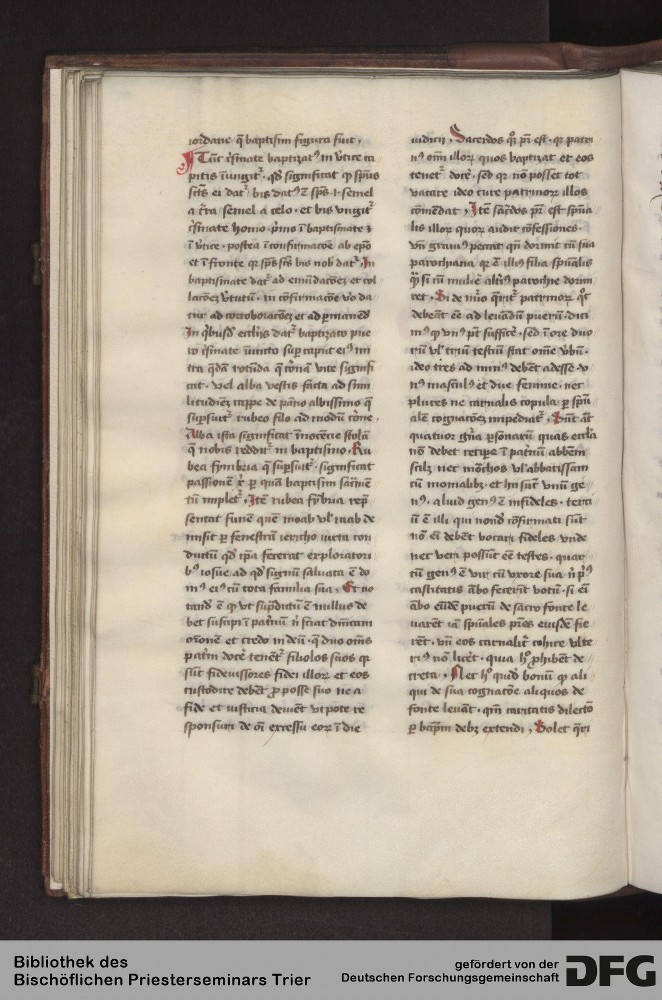 iordane q̄ baptismi figura fuit
Tūc crismate baptizatꝰ in v̓tice ca
pitis īungitᷣ · qđ significat ꝙ spūs
scūs ei datᷣ bis datꝰ ē spūs s semel
a t̄ra semel a celo · et bis vngitᷣ
crismate homo · pͥmo ī baptismate ⁊
ī v̓tice · postea ī confirmacōe ab epō
et ī fronte qꝛ spūs scūs bis nob datᷣ · In
baptismate datᷣ ad emūdacōeꝫ et col
lacōeꝫ v̓tutū · in cōfirmacōe v̓o da
tur ad corroboracōeꝫ et ad
In qͥbusđ ecclijs datᷣ baptizato pue
ro crismate inūcto sup caput eiꝰ mi
tra qđā rotūda q̄ coronā vite signifi
cat · vel alba vestis facta ad simi
litudīeꝫ cappe de pāno albissimo q̄
supsuitᷣ rubeo filo ad modū corone ·
Alba ista significat īnocēcie stolā
q̄ nobis redditᷣ in baptismo · Ru
bea fymbria q̄ supsuitᷣ · significat
passionē xp̄i per quā baptismi sacͣmē
tū implet · Itē rubea fȳbria rep̄
sentat funē quē moab vl̓ raab de
misit per fenestrā iericho iuxta con
ductū qđ ip̄a fecerat exploratori
bꝰ iosue ad qđ signū saluata ē do
mꝰ eiꝰ cū tota familia sua · Et no
tandū ē ꝙ vt supͣdictū ē nullus de
bet suscipi ī patͥnū nͥ sciat dnīcam
oͬonē et credo in deū · q̄ duo om̄s
patͥni docē tenētᷣ filiolos suos qꝛ
sūt fideiussores fidei illorꝫ et eos
custodire debēt per posse suo ne a
fide et iusticia deuiēt vtpote re
sponsuri de oī excessu eorꝫ ī die
iudicij · Sacerdos · qꝛ patri
nꝰ om̄i illorꝫ quos baptizat et eos
tenetᷣ docē · sed qꝛ nō posset tot
vacare ideo cure patrinorꝫ illos
cōmēdat · Itē sac̓dos pr̄ est spūa
lis illorꝫ quorꝫ audit cōfessiones ·
vn̄ grauiꝰ peccat qn̄ dormit cū sua
parochiana qꝛ ē illiꝰ filia spūalis
qͣꝫ si cū muliē altͥiꝰ parochie dormi
ret · Si de nūo q̄ritᷣ patrinorꝫ qͦt
debeāt eē ad leuādū puerū · dici
mꝰ ꝙ vnꝰ pt̄ sufficē · sed ī ore duo
rū vl̓ triū testiū stat om̄e v̓bū ·
ideo tres ad minꝰ debēt adesse · v
nꝰ masculꝰ et due femine · nec
plures ne carnalis copula per spūa
alē cognacōeꝫ impediatᷣ · Sūt aūt
quatuor gn̄a personarū quas eccl̄ia
nō debet recipe ī patͥnū abbēm
scilꝫ nec mōchos vl̓ abbatissam
cū monialibꝫ · et hii sūt vnū ge
nꝰ · aliud genꝰ ē infideles · terci
ū ē illi qui nondū cōfirmati sūt
nō eī debēt vocari fideles vnde
nec veri possūt eē testes · quar
tū genꝰ ē vir cū vxore sua nͥ pͥꝰ
castitatis ābo fecerīt votū · si eī
ābo eūdē puerū de sacro fonte le
uarēt iā spūales pr̄es eiusdē fie
rēt · vn̄ eos carnalitᷣ cohire vlte
riꝰ nō licēt · quia hͦ ꝓhibēt de
creta · Nec hͦ qͥdē bonū ꝙ ali
qui de sua cognacōe aliquos de
fonte leuāt · qm̄ caritatis dilectō
per bapͥsm̄ debꝫ extendi · Solet q̄ri
Bibliothek des
Bischöflichen Priesterseminars Trier
gefördert von der
Deutschen Forschungsgemeinschaft
DFG